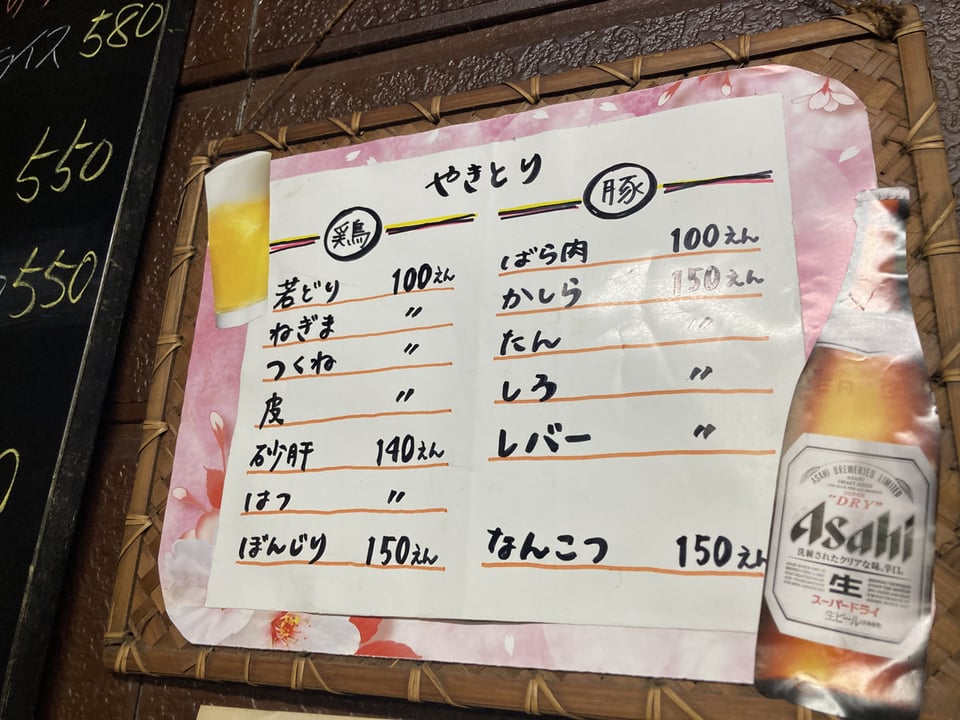 ライス 580
550
550
やきとり
鶏
若どり 100えん
ねぎま 〃
つくね 〃
皮 〃
砂肝 140えん
はつ 〃
ぼんじり 150えん
豚
ばら肉 100えん
かしら 150えん
たん 〃
しろ 〃
レバー 〃
なんこつ 150えん
Asahi
ASAHI BREWERIES LIMITED
SUPER
"DRY"
Asahi
洗練されたクリアな味、辛口。
生
スーパードライ
生ビール